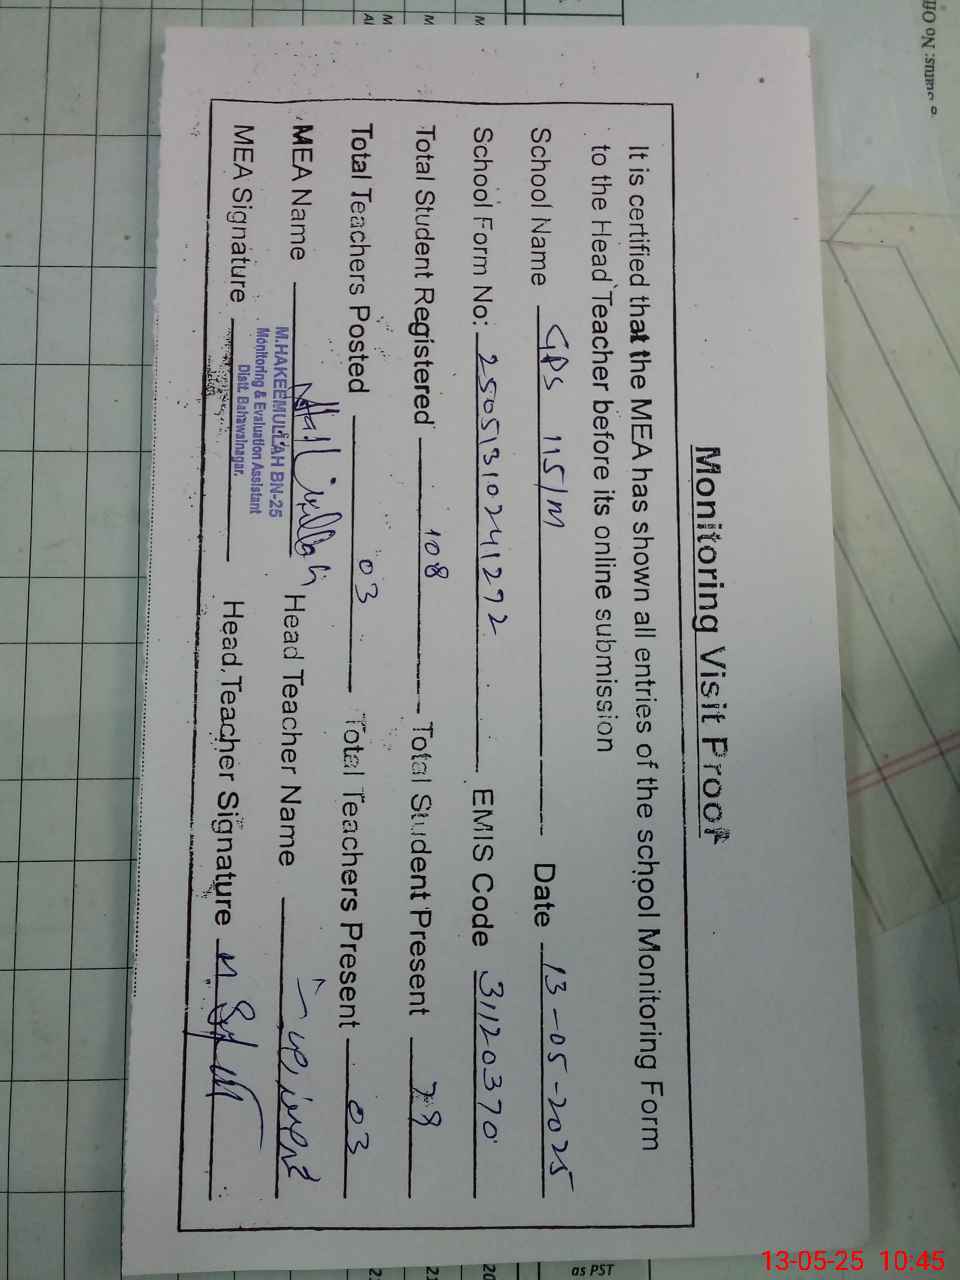 Monitoring Visit Proof
It is certified that the MEA has shown all entries of the school Monitoring Form
to the Head Teacher before its online submission
School Name GPS 115/M Date 13-05-2025
School Form No: 25051310241292 EMIS Code 31120370
Total Student Registered 108 Total Student Present 78
Total Teachers Posted 03 Total Teachers Present 03
MEA Name Head Teacher Name
M.HAKEEMULLAH BN-25
Monitoring & Evaluation Assistant
Distt. Bahawalnagar.
MEA Signature Head Teacher Signature
as PST
20
21
13-05-25 10:45